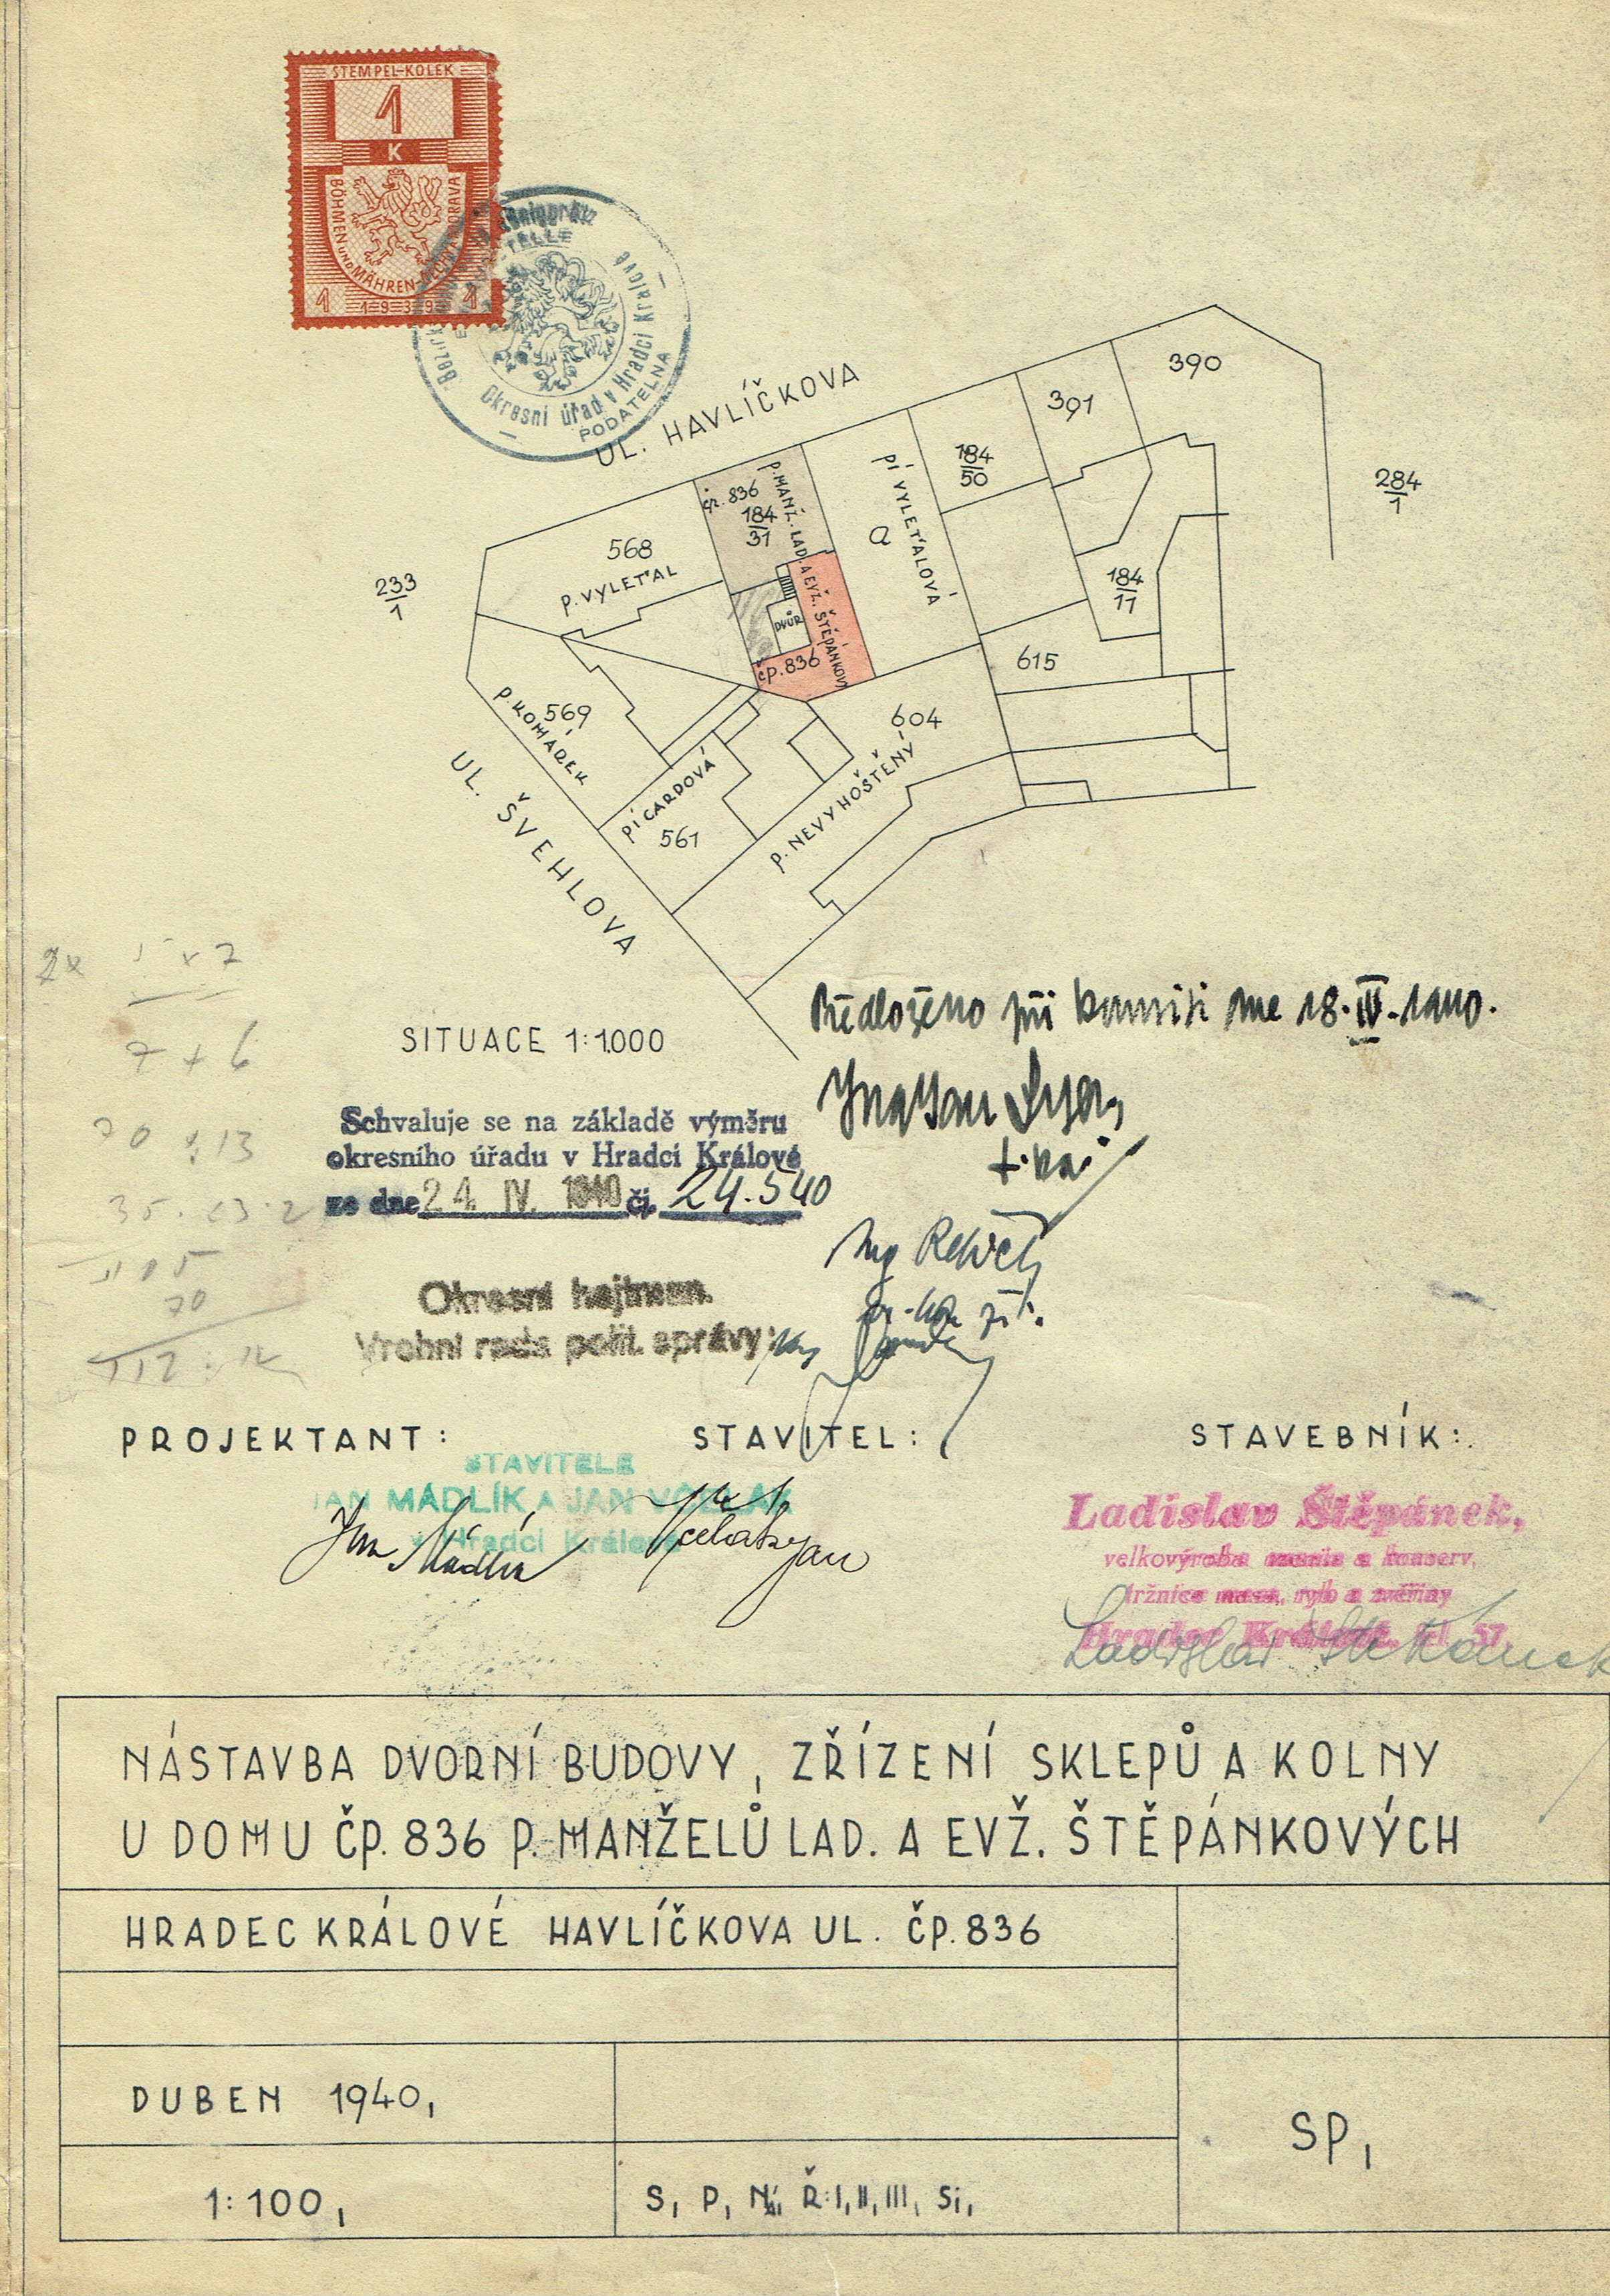 STEMPEL-KOLEK
1
K
BÖHMEN UND MÄHREN - ČECHY A MORAVA
1 1939 1
Königgrätz
Okresní úřad v Hradci Králové
PODATELNA
UL. HAVLÍČKOVA
390
391
184/50
284/1
čp. 836
184/31
P. MANŽ. LAD. A EVŽ. ŠTĚPÁNKOVI
a
PÍ VYLEŤALOVÁ
568
P. VYLEŤAL
233/1
184/11
DVŮR
čp. 836
615
569
P. KOMÁREK
604
P. NEVYHOŠTĚNÝ
PÍ CARDOVÁ
561
UL. ŠVEHLOVA
2x 5 x 7
7 + 6
70 : 13
Předloženo při komisi dne 18. IV. 1940.
SITUACE 1:1.000
Schvaluje se na základě výměru
okresního úřadu v Hradci Králové
ze dne 24. IV. 1940 čj. 24.540
Okresní hejtman.
Vrchní rada polit. správy:
PROJEKTANT: STAVITEL: STAVEBNÍK:
STAVITELE
JAN MÁDLÍK A JAN
v Hradci Králové
Jan Mádlík
Ladislav Štěpánek,
velkovýroba uzenin a konserv,
tržnice masa, ryb a zvěřiny
Hradec Králové, tel. 57
Ladislav Štěpánek
NÁSTAVBA DVORNÍ BUDOVY, ZŘÍZENÍ SKLEPŮ A KOLNY
U DOMU ČP. 836 P. MANŽELŮ LAD. A EVŽ. ŠTĚPÁNKOVÝCH
HRADEC KRÁLOVÉ HAVLÍČKOVA UL. ČP. 836
DUBEN 1940,
SP,
1:100,
S, P, N, Ř: I, II, III, Si,